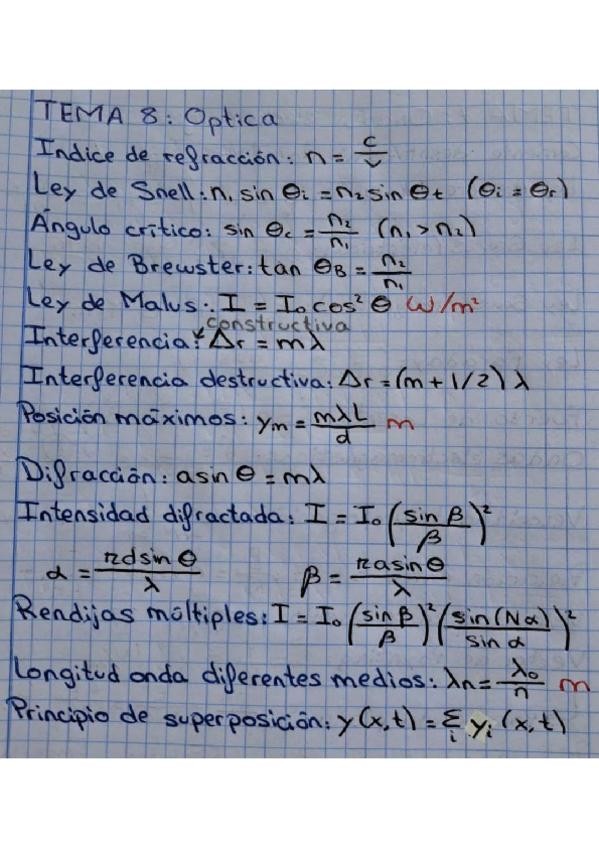 TEMA 8: Optica
Indice de refracción: n = c/v
Ley de Snell: n₁ sin θi = n₂ sin θt (θi = θr)
Ángulo crítico: sin θc = n₂/n₁ (n₁ > n₂)
Ley de Brewster: tan θB = n₂/n₁
Ley de Malus: I = I₀ cos² θ W/m²
constructiva
Interferencia: Δr = mλ
Interferencia destructiva: Δr = (m + 1/2) λ
Posición máximos: ym = mλL/d m
Difracción: a sin θ = mλ
Intensidad difractada: I = I₀ (sin β/β)²
α = πd sin θ/λ β = πa sin θ/λ
Rendijas múltiples: I = I₀ (sin β/β)² (sin(Nα)/sin α)²
Longitud onda diferentes medios: λn = λ₀/n m
Principio de superposición: y(x,t) = Σi yi (x,t)